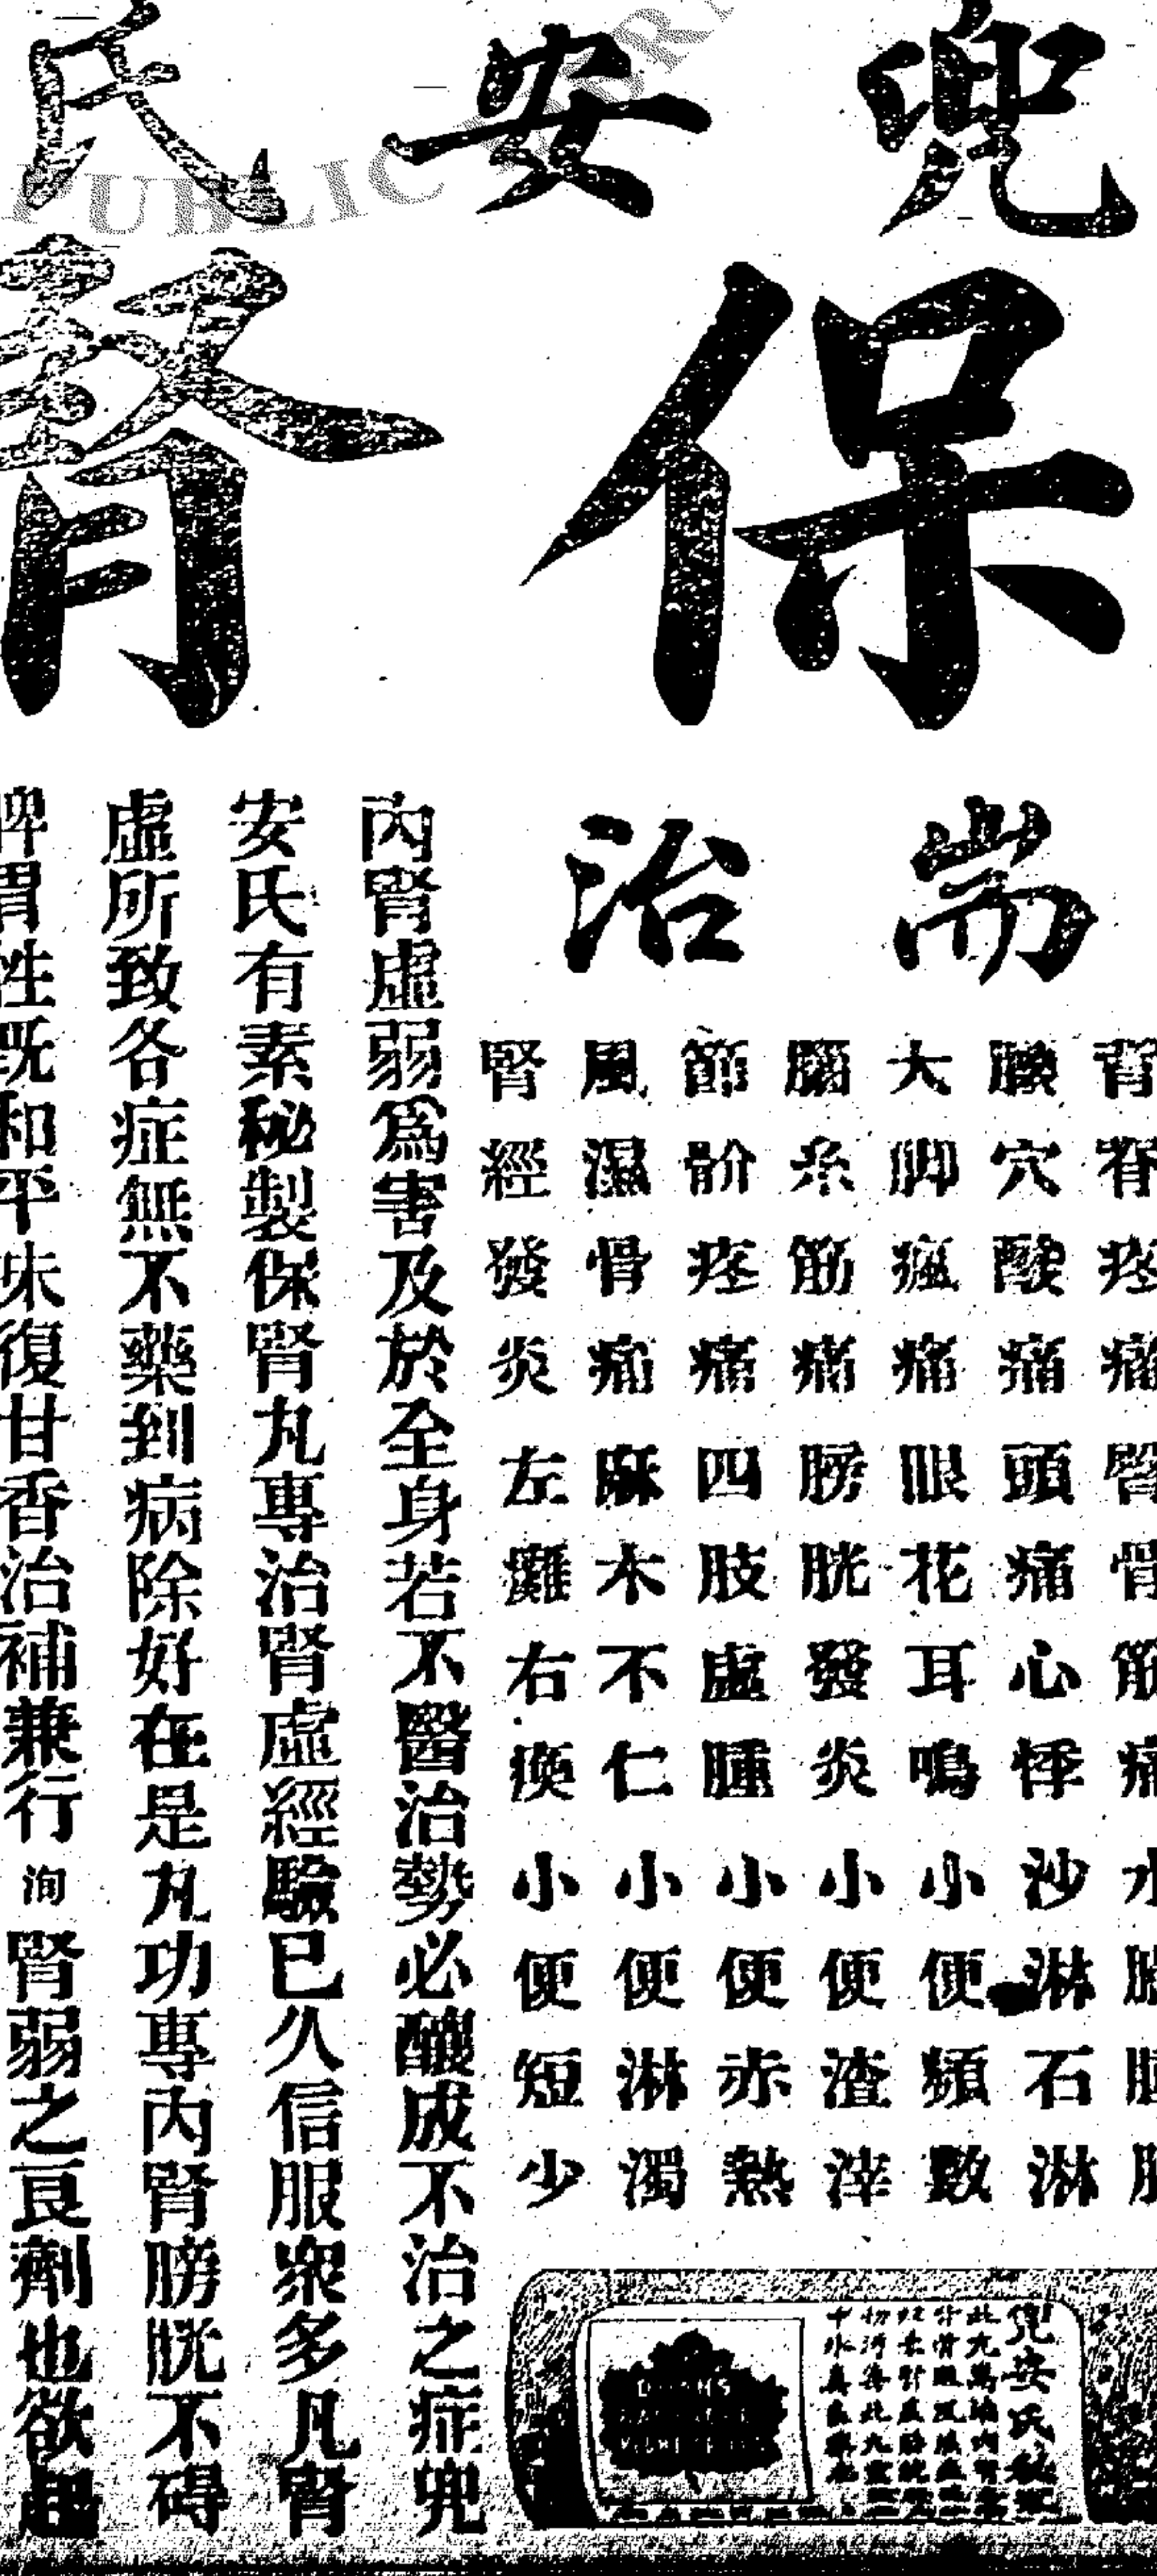 兜安氏
保腎
耑治
背脊疼痛
臀骨筋痛
腰穴酸痛
頭痛心悸
沙淋石淋
大脚瘋痛
眼花耳鳴
小便頻數
腦系筋痛
膀胱發炎
小便渣滓
節骱疼痛
四肢虛腫
小便赤熱
風濕骨痛
麻木不仁
小便淋濁
腎經發炎
左癱右瘓
小便短少
內腎虛弱為害及於至身若不醫治勢必釀成不治之症兜
安氏有素秘製保腎丸專治腎虛經驗已久信服衆多凡腎
虛所致各症無不藥到病除好在是丸功專內腎膀胱不碍
脾胃性既和平味復甘香治補兼行洵腎弱之良劑也欲
兜安氏
PUBLIC